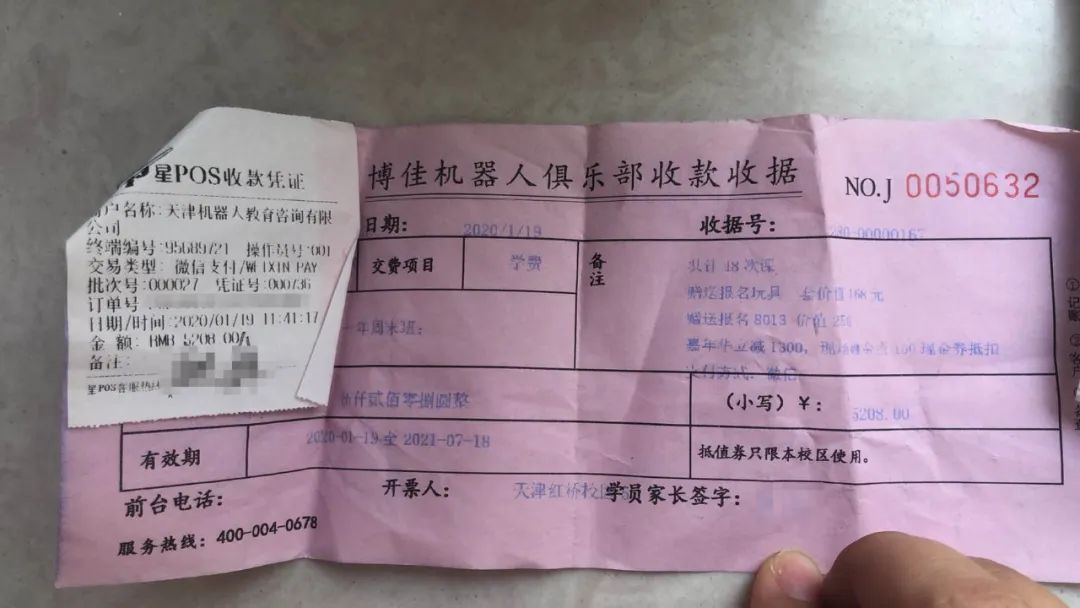 星POS收款凭证
户名称:天津机器人教育咨询有限
公司
终端编号:95689721 操作员号:001
交易类型: 微信支付/WEIXIN PAY
批次号:000027 凭证号:000736
订单号
日期/时间:2020/01/19 11:41:17
金额: RMB 5208.00
备注:
星POS客服热线
博佳机器人俱乐部收款收据
NO.J 0050632
日期: 2020/1/19
收据号: 280-00000167
交费项目 学费
备注
共计 48 次课
赠送报名玩具 价值168元
赠送报名8013 价值
嘉年华立减1300,
现金券抵扣
支付方式: 微信
一年周末班:
伍仟贰佰零捌圆整
(小写)¥: 5208.00
有效期 2020-01-19至2021-07-18
抵值券只限本校区使用。
前台电话:
开票人: 天津红桥校区
学员家长签字:
服务热线: 400-004-0678
① 记账